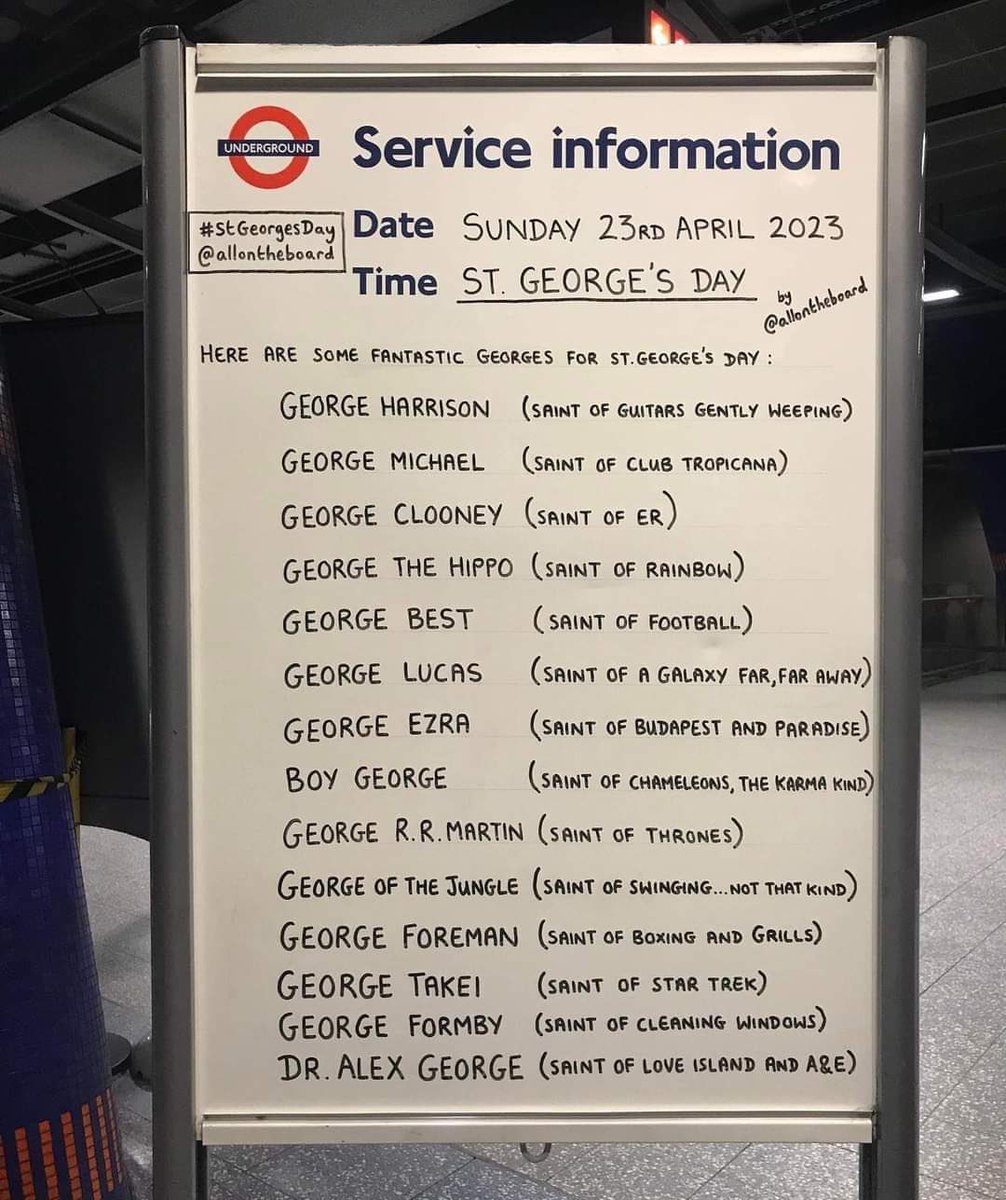 UNDERGROUND
Service information
#StGeorgesDay
@allontheboard
Date SUNDAY 23RD APRIL 2023
Time ST. GEORGE'S DAY
by
@allontheboard
HERE ARE SOME FANTASTIC GEORGES FOR ST.GEORGE'S DAY:
GEORGE HARRISON (SAINT OF GUITARS GENTLY WEEPING)
GEORGE MICHAEL (SAINT OF CLUB TROPICANA)
GEORGE CLOONEY (SAINT OF ER)
GEORGE THE HIPPO (SAINT OF RAINBOW)
GEORGE BEST (SAINT OF FOOTBALL)
GEORGE LUCAS (SAINT OF A GALAXY FAR, FAR AWAY)
GEORGE EZRA (SAINT OF BUDAPEST AND PARADISE)
BOY GEORGE (SAINT OF CHAMELEONS, THE KARMA KIND)
GEORGE R.R. MARTIN (SAINT OF THRONES)
GEORGE OF THE JUNGLE (SAINT OF SWINGING...NOT THAT KIND)
GEORGE FOREMAN (SAINT OF BOXING AND GRILLS)
GEORGE TAKEI (SAINT OF STAR TREK)
GEORGE FORMBY (SAINT OF CLEANING WINDOWS)
DR. ALEX GEORGE (SAINT OF LOVE ISLAND AND A&E)